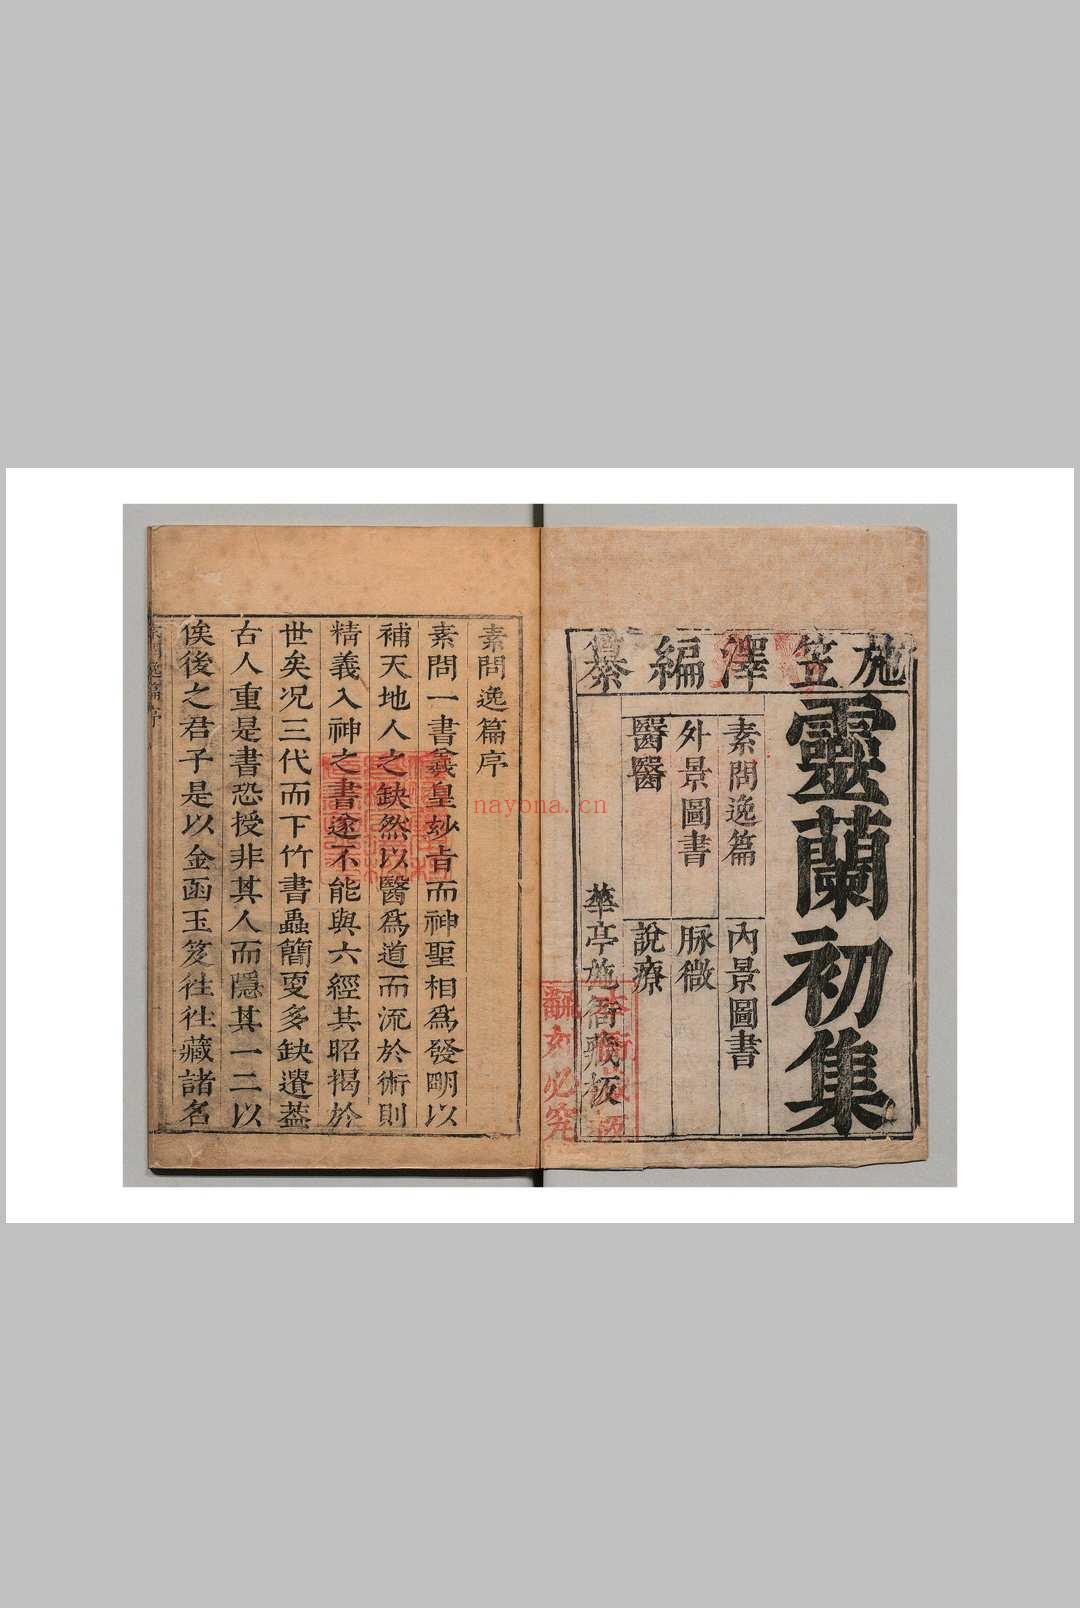 施笠澤編纂
靈蘭初集
素問逸篇
內景圖書
外景圖書
脉微
醫醫
說療
華亭施衙藏板
本衙藏板
翻刻必究
素問逸篇序
素問一書羲皇玅旨而神聖相爲發明以
補天地人之缺然以醫爲道而流於術則
精義入神之書遂不能與六經共昭揭於
世矣況三代而下竹書蟲簡更多缺遺蓋
古人重是書恐授非其人而隱其一二以
俟後之君子是以金函玉笈往往藏諸名
nayona.cn